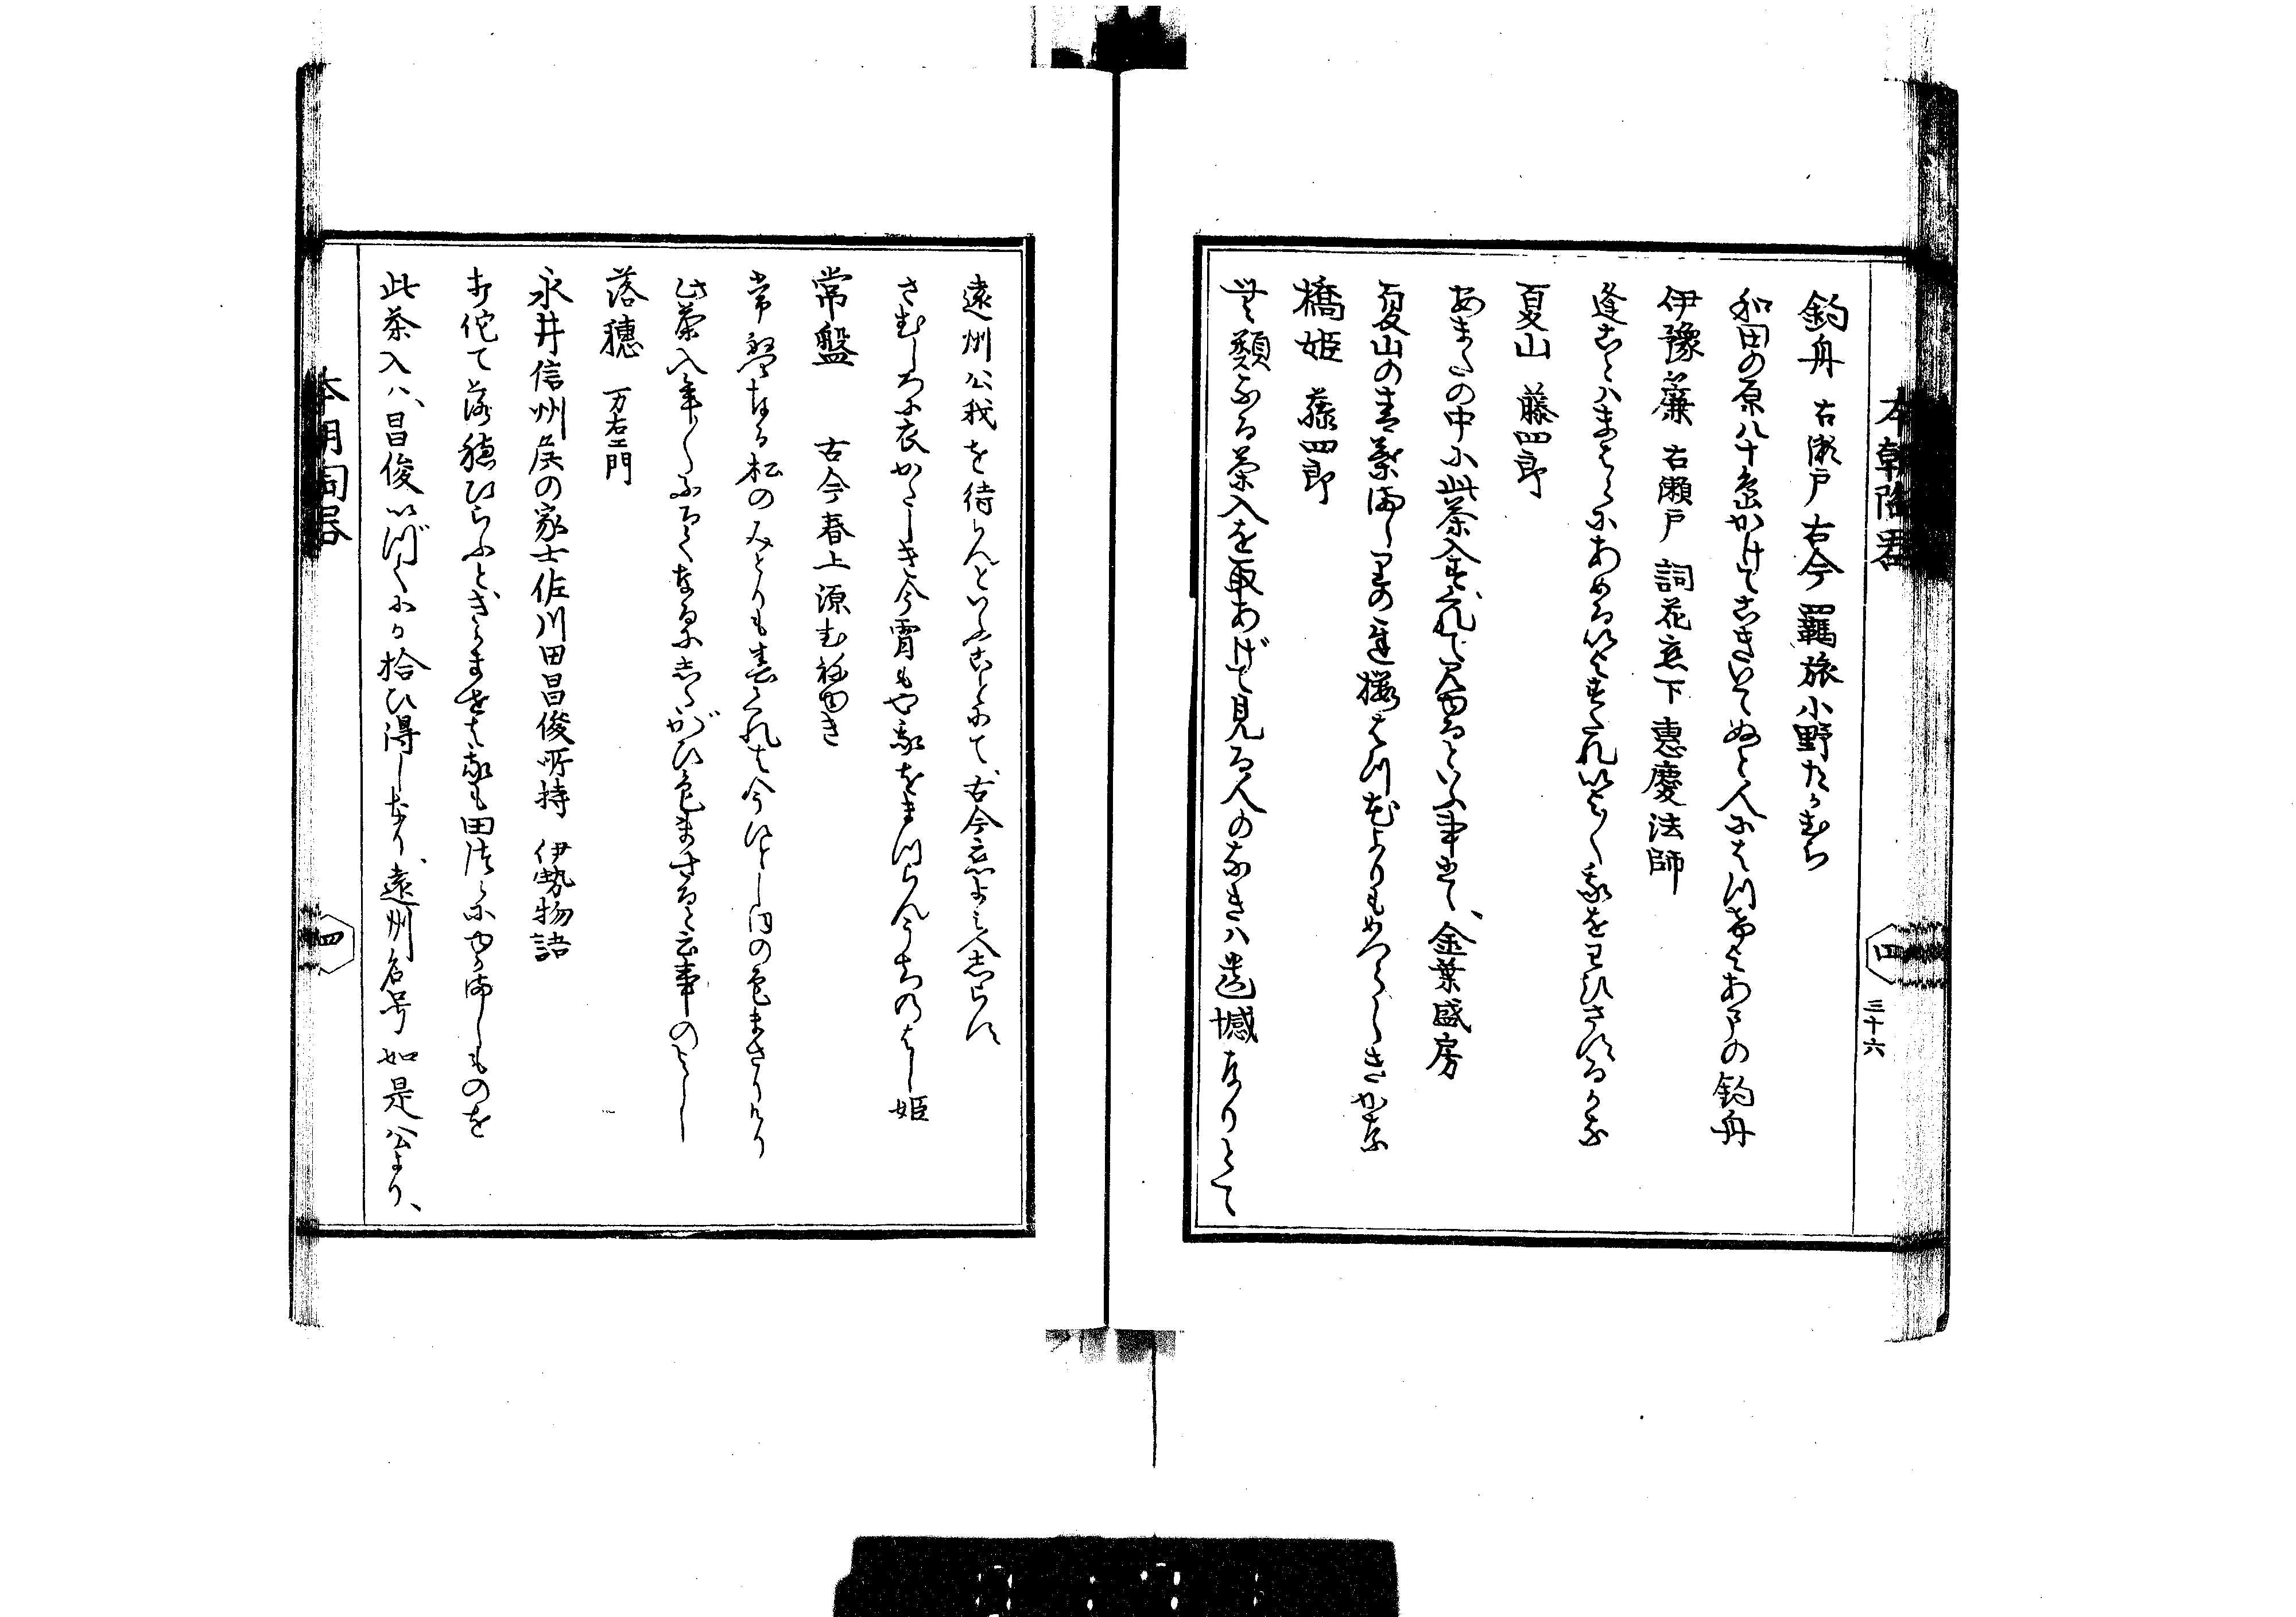 本朝陶器
四
三十六
釣舟 古瀬戸 古今 羈旅 小野たかむら
和田の原八十嶋かけてこきいてぬと人にはつけよあまの釣舟
伊豫簾 古瀬戸 詞花恋下 恵慶法師
逢ことはまはらにあめるいよすたれいよ〱我をわひさするかな
夏山 藤四郎
あまたの中に此茶入金葉盛房
夏山の青葉ましりの遅桜はつ花よりもめつらしきかな
橋姫 藤四郎
無類なる茶入を取あげて見る人のなきハ遺憾なりとて
遠州公我を待らんといふことにて、古今恋よみ人志らす
さむしろに衣かたしき今宵もや我をまつらんうちのはし姫
常盤 古今春上 源むねゆき
常盤なる松のみとりも春くれは今ひとしほの色まさりけり
此茶入年〱ふるくなるにしたがひ色まさると云事のよし
落穂 万右エ門
永井信州侯の家士佐川田昌俊所持 伊勢物語
打侘て落穂ひろふときかませは我も田つらにゆかましものを
此茶入ハ、昌俊いづくにか拾ひ得しなり、遠州名号如是公より、
本朝陶器
四